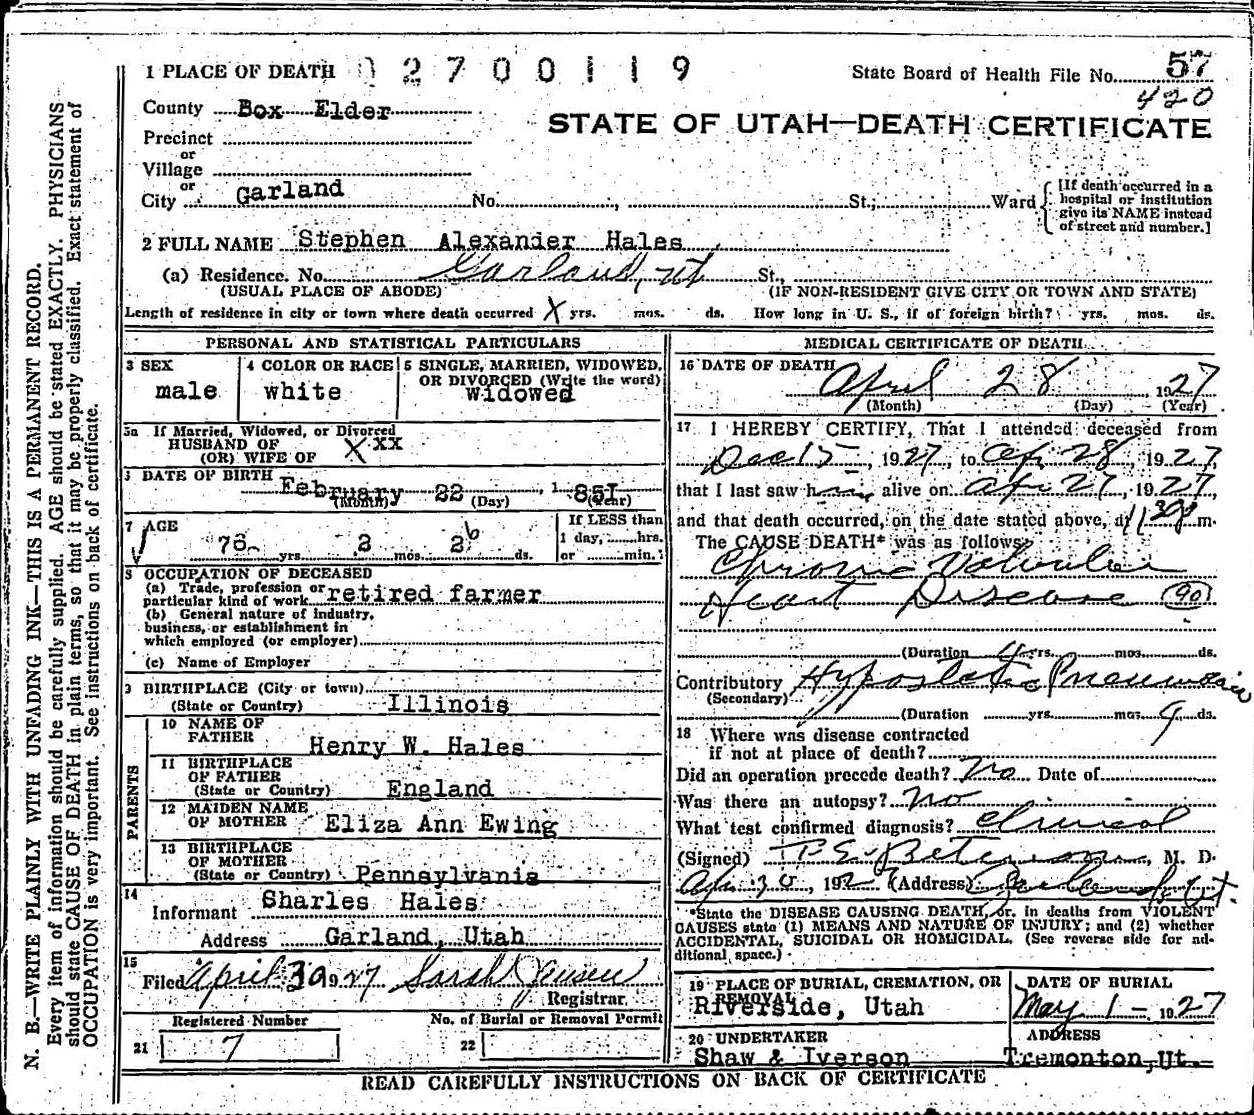 N. B.—WRITE PLAINLY WITH UNFADING INK—THIS IS A PERMANENT RECORD.
Every item of information should be carefully supplied. AGE should be stated EXACTLY. PHYSICIANS
should state CAUSE OF DEATH in plain terms, so that it may be properly classified. Exact statement of
OCCUPATION is very important. See instructions on back of certificate.
1 PLACE OF DEATH 02700119
State Board of Health File No. 57
420
County Box Elder
STATE OF UTAH—DEATH CERTIFICATE
Precinct
or
Village
or
City Garland No. St.; Ward
[If death occurred in a
hospital or institution
give its NAME instead
of street and number.]
2 FULL NAME Stephen Alexander Hales
(a) Residence. No. Garland, Ut St.,
(USUAL PLACE OF ABODE) (IF NON-RESIDENT GIVE CITY OR TOWN AND STATE)
Length of residence in city or town where death occurred X yrs. mos. ds. How long in U. S., if of foreign birth? yrs. mos. ds.
PERSONAL AND STATISTICAL PARTICULARS
3 SEX
male
4 COLOR OR RACE
white
5 SINGLE, MARRIED, WIDOWED,
OR DIVORCED (Write the word)
widowed
5a If Married, Widowed, or Divorced
HUSBAND OF
(OR) WIFE OF X xx
DATE OF BIRTH February 22, 1851
(Month) (Day) (Year)
7 AGE
76 yrs. 2 mos. 26 ds.
If LESS than
1 day, hrs.
or min.
8 OCCUPATION OF DECEASED
(a) Trade, profession or
particular kind of work retired farmer
(b) General nature of industry,
business, or establishment in
which employed (or employer)
(c) Name of Employer
9 BIRTHPLACE (City or town)
(State or Country) Illinois
PARENTS
10 NAME OF
FATHER Henry W. Hales
11 BIRTHPLACE
OF FATHER
(State or Country) England
12 MAIDEN NAME
OF MOTHER Eliza Ann Ewing
13 BIRTHPLACE
OF MOTHER
(State or Country) Pennsylvania
14
Informant Sharles Hales
Address Garland, Utah
15
Filed April 30 1927 Sarah Jensen
Registrar.
Registered Number
21 7
No. of Burial or Removal Permit
22
MEDICAL CERTIFICATE OF DEATH
16 DATE OF DEATH
April 28 1927
(Month) (Day) (Year)
17 I HEREBY CERTIFY, That I attended deceased from
Dec 15, 1927, to Apr 28, 1927,
that I last saw him alive on Apr 27, 1927,
and that death occurred, on the date stated above, at 11 30 m.
The CAUSE DEATH* was as follows:
Chronic Valvular
Heart Disease (90)
(Duration yrs. mos. ds.
Contributory Hypostatic Pneumonia
(Secondary)
(Duration yrs. mos. 9 ds.
18 Where was disease contracted
if not at place of death?
Did an operation precede death? No Date of
Was there an autopsy? No
What test confirmed diagnosis? clinical
(Signed) Peterson, M. D.
Apr 30, 1927 (Address) Garland, Ut.
*State the DISEASE CAUSING DEATH, or, in deaths from VIOLENT
CAUSES state (1) MEANS AND NATURE OF INJURY; and (2) whether
ACCIDENTAL, SUICIDAL OR HOMICIDAL. (See reverse side for ad-
ditional space.)
19 PLACE OF BURIAL, CREMATION, OR
REMOVAL
Riverside, Utah
DATE OF BURIAL
May 1 – 1927
20 UNDERTAKER
Shaw & Iverson
ADDRESS
Tremonton, Ut.
READ CAREFULLY INSTRUCTIONS ON BACK OF CERTIFICATE